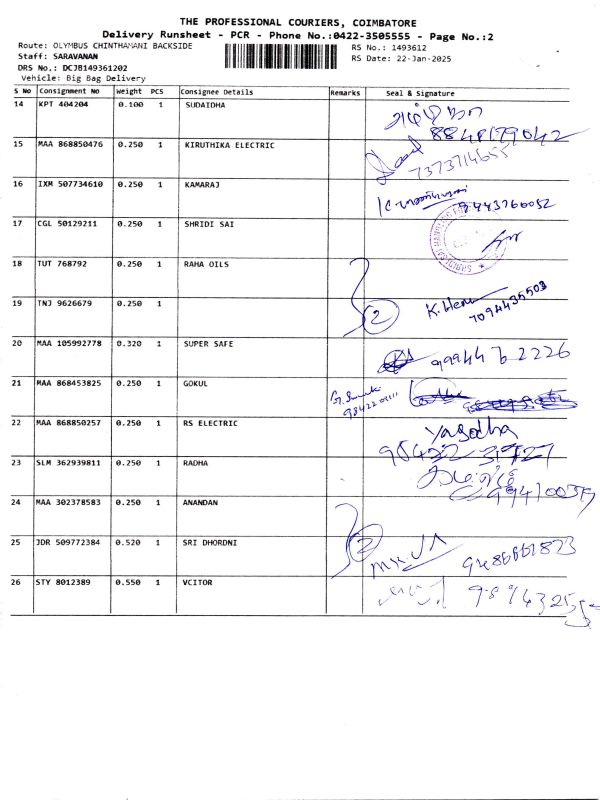 THE PROFESSIONAL COURIERS, COIMBATORE
Delivery Runsheet - PCR - Phone No.:0422-3505555 - Page No.:2
Route: OLYMBUS CHINTHAMANI BACKSIDE
RS No.: 1493612
Staff: SARAVANAN
RS Date: 22-Jan-2025
DRS No.: DCJB149361202
Vehicle: Big Bag Delivery
S No Consignment No Weight PCS Consignee Details Remarks Seal & Signature
14 KPT 404204 0.100 1 SUDAIDHA
8848179042
15 MAA 868850476 0.250 1 KIRUTHIKA ELECTRIC
7373714655
16 IXM 507734610 0.250 1 KAMARAJ
9443766052
17 CGL 50129211 0.250 1 SHRIDI SAI
18 TUT 768792 0.250 1 RAHA OILS
19 TNJ 9626679 0.250 1 2 K. Hem
7094435503
20 MAA 105992778 0.320 1 SUPER SAFE 99944 62226
21 MAA 868453825 0.250 1 GOKUL
22 MAA 868850257 0.250 1 RS ELECTRIC Yasodha
98422 31727
23 SLM 362939811 0.250 1 RADHA
24 MAA 302378583 0.250 1 ANANDAN
25 JDR 509772384 0.520 1 SRI DHORDNI 2 9486661823
26 STY 8012389 0.550 1 VCITOR